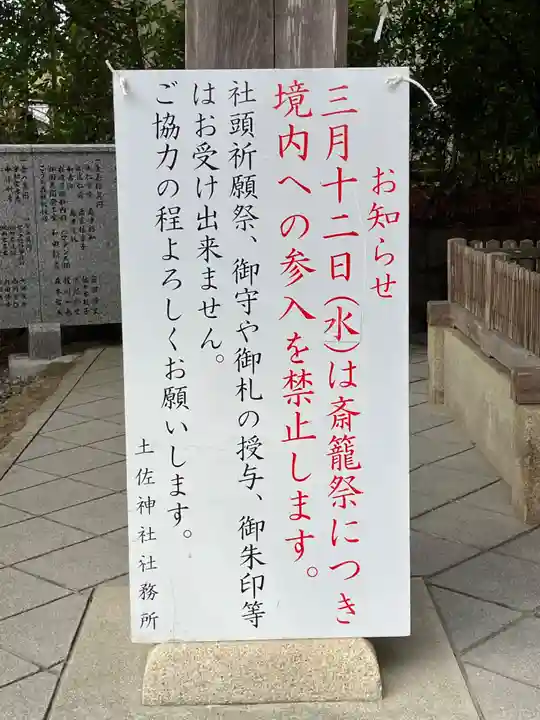 お知らせ
三月十二日(水)は斎籠祭につき
境内への参入を禁止します。
社頭祈願祭、御守や御札の授与、御朱印等
はお受け出来ません。
ご協力の程よろしくお願いします。
土佐神社社務所